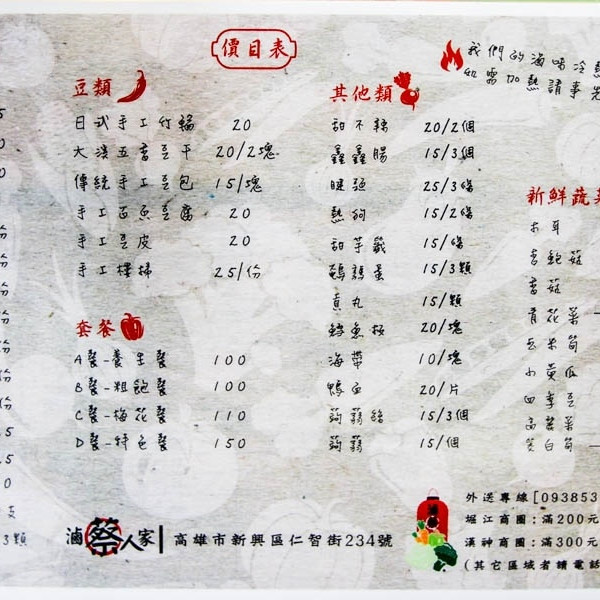 價目表
我們的滷味冷熱
如需加熱請事先
豆類
日式手工竹輪 20
大溪五香豆干 20/2塊
傳統手工豆包 15/塊
手工百頁豆腐 20
手工豆皮 20
手工樓梯 25/份
套餐
A餐-養生餐 100
B餐-粗飽餐 100
C餐-梅花餐 110
D餐-特色餐 150
其他類
甜不辣 20/2個
鑫鑫腸 15/3個
25/3條
熱狗 15/2條
甜芋籤 15/條
鵪鶉蛋 15/3顆
貢丸 15/顆
鱈魚板 20/塊
海帶 10/塊
鴨血 20/片
蒟蒻絲 15/3個
蒟蒻 15/個
新鮮蔬菜
木耳
杏鮑菇
香菇
青花菜
玉米筍
小黃瓜
四季豆
高麗菜
茭白筍
份
份
份
份
份
支
3顆
滷祭人家 高雄市新興區仁智街234號
外送專線[093853
堀江商圈:滿200元
漢神商圈:滿300元
(其它區域者請電話